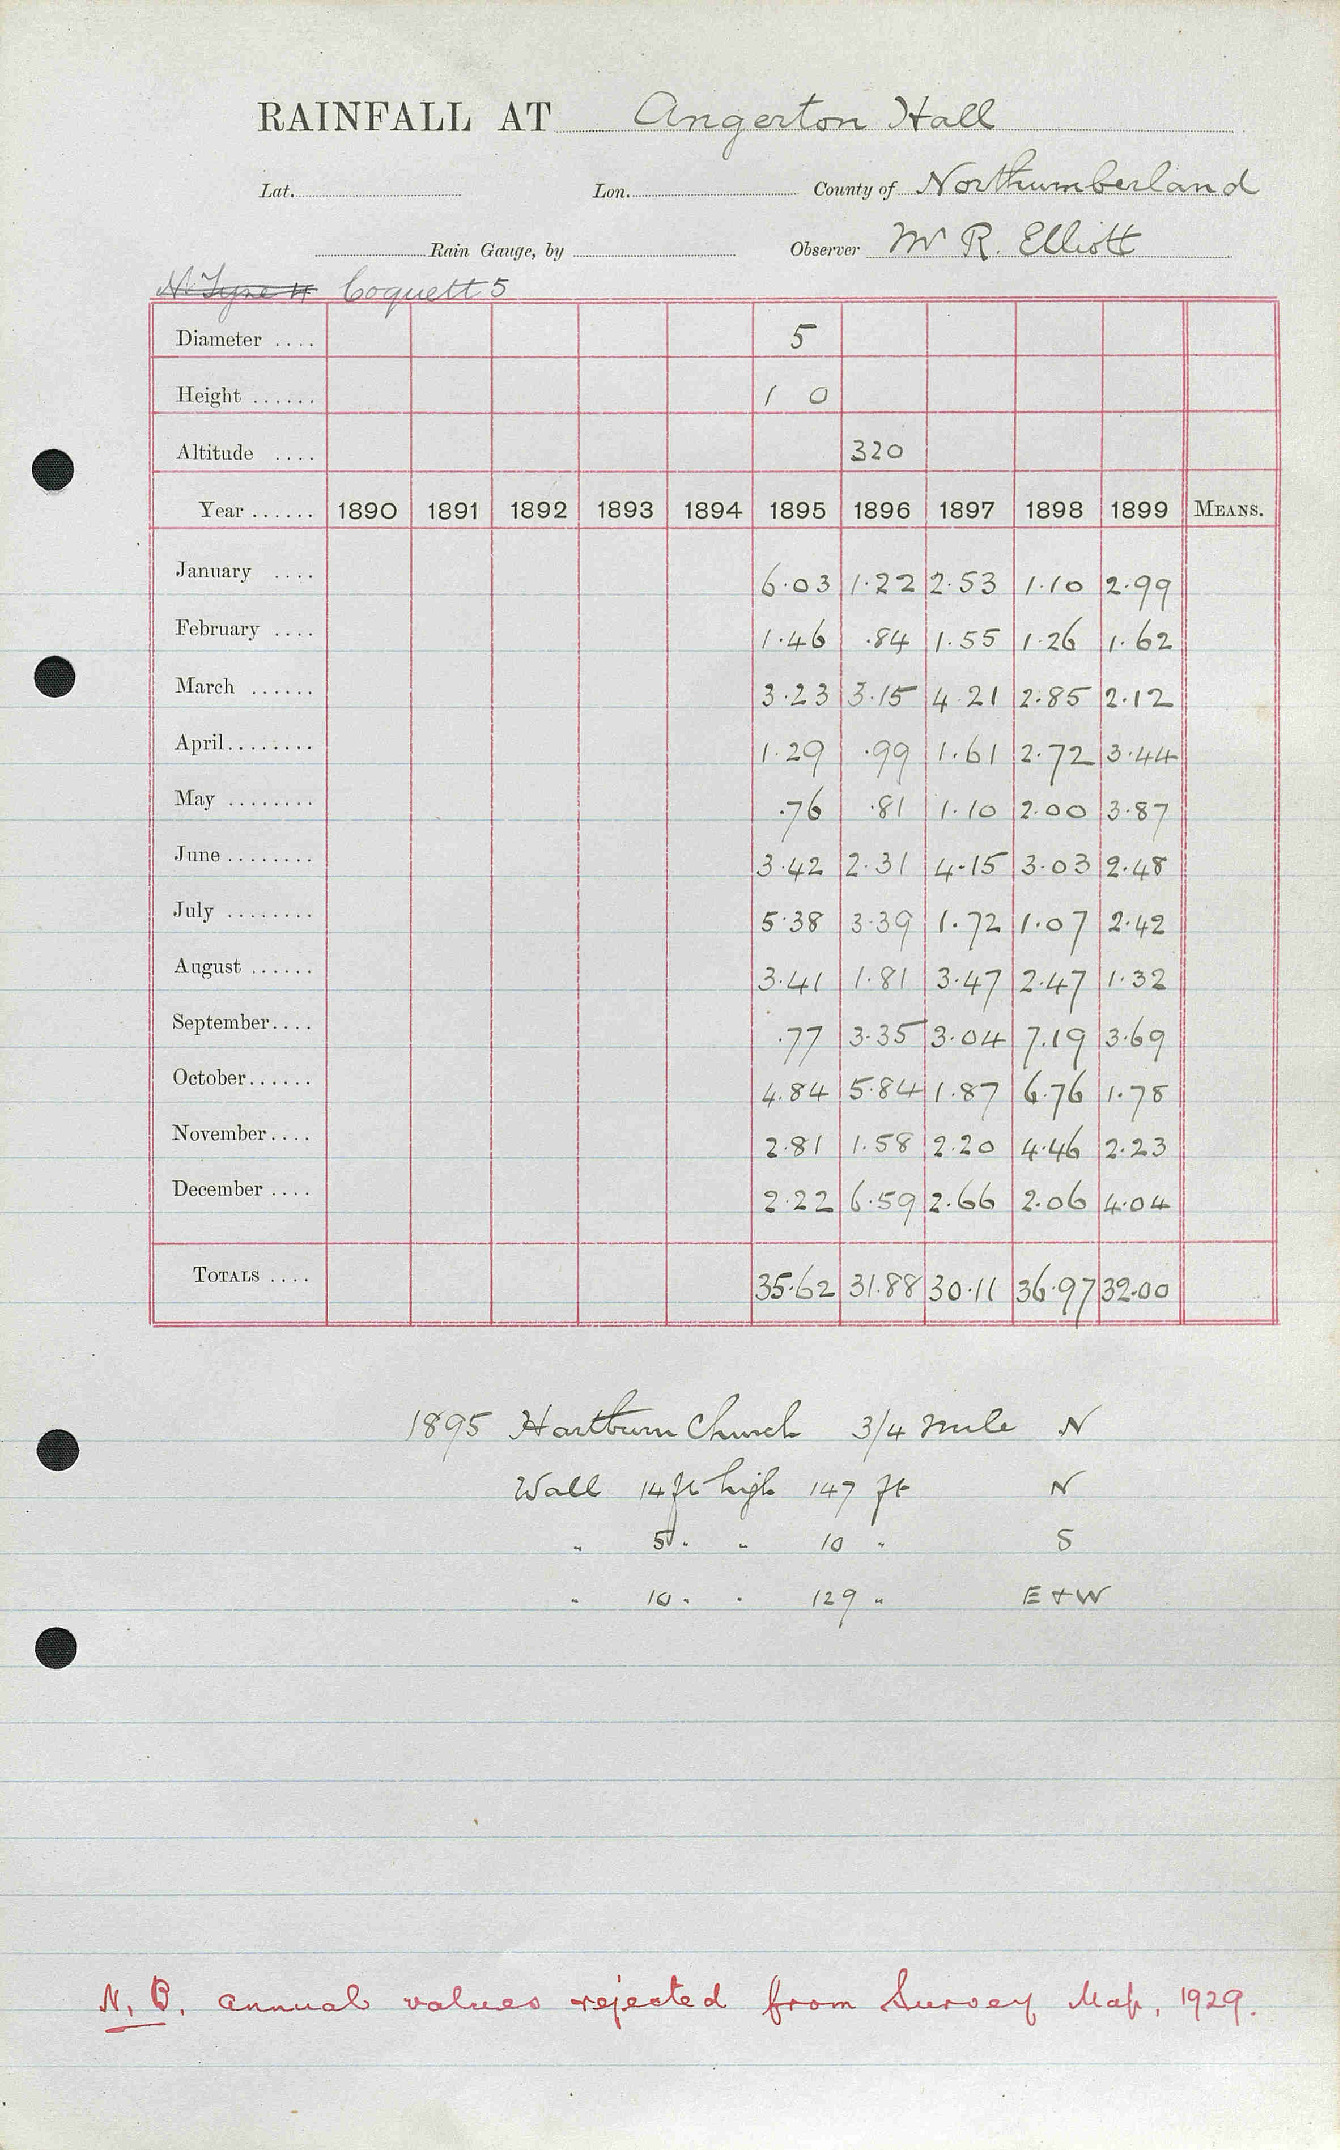 RAINFALL AT Angerton Hall
Lat. Lon. County of Northumberland
Rain Gauge, by Observer Mr R. Elliott
N. Tyne 4 Coquett 5
Diameter .... 5
Height ...... 1 0
Altitude .... 320
Year ...... 1890 1891 1892 1893 1894 1895 1896 1897 1898 1899 MEANS.
January .... 6.03 1.22 2.53 1.10 2.99
February .... 1.46 .84 1.55 1.26 1.62
March ...... 3.23 3.15 4.21 2.85 2.12
April........ 1.29 .99 1.61 2.72 3.44
May ........ .76 .81 1.10 2.00 3.87
June ........ 3.42 2.31 4.15 3.03 2.48
July ........ 5.38 3.39 1.72 1.07 2.42
August ...... 3.41 1.81 3.47 2.47 1.32
September.... .77 3.35 3.04 7.19 3.69
October...... 4.84 5.84 1.87 6.76 1.78
November.... 2.81 1.58 2.20 4.46 2.23
December .... 2.22 6.59 2.66 2.06 4.04
TOTALS .... 35.62 31.88 30.11 36.97 32.00
1895 Hartburn Church 3/4 mile N
Wall 14 ft high 147 ft N
" 5 " " 10 " S
" 10 " " 129 " E + W
N.B. annual values rejected from Survey Map, 1929.